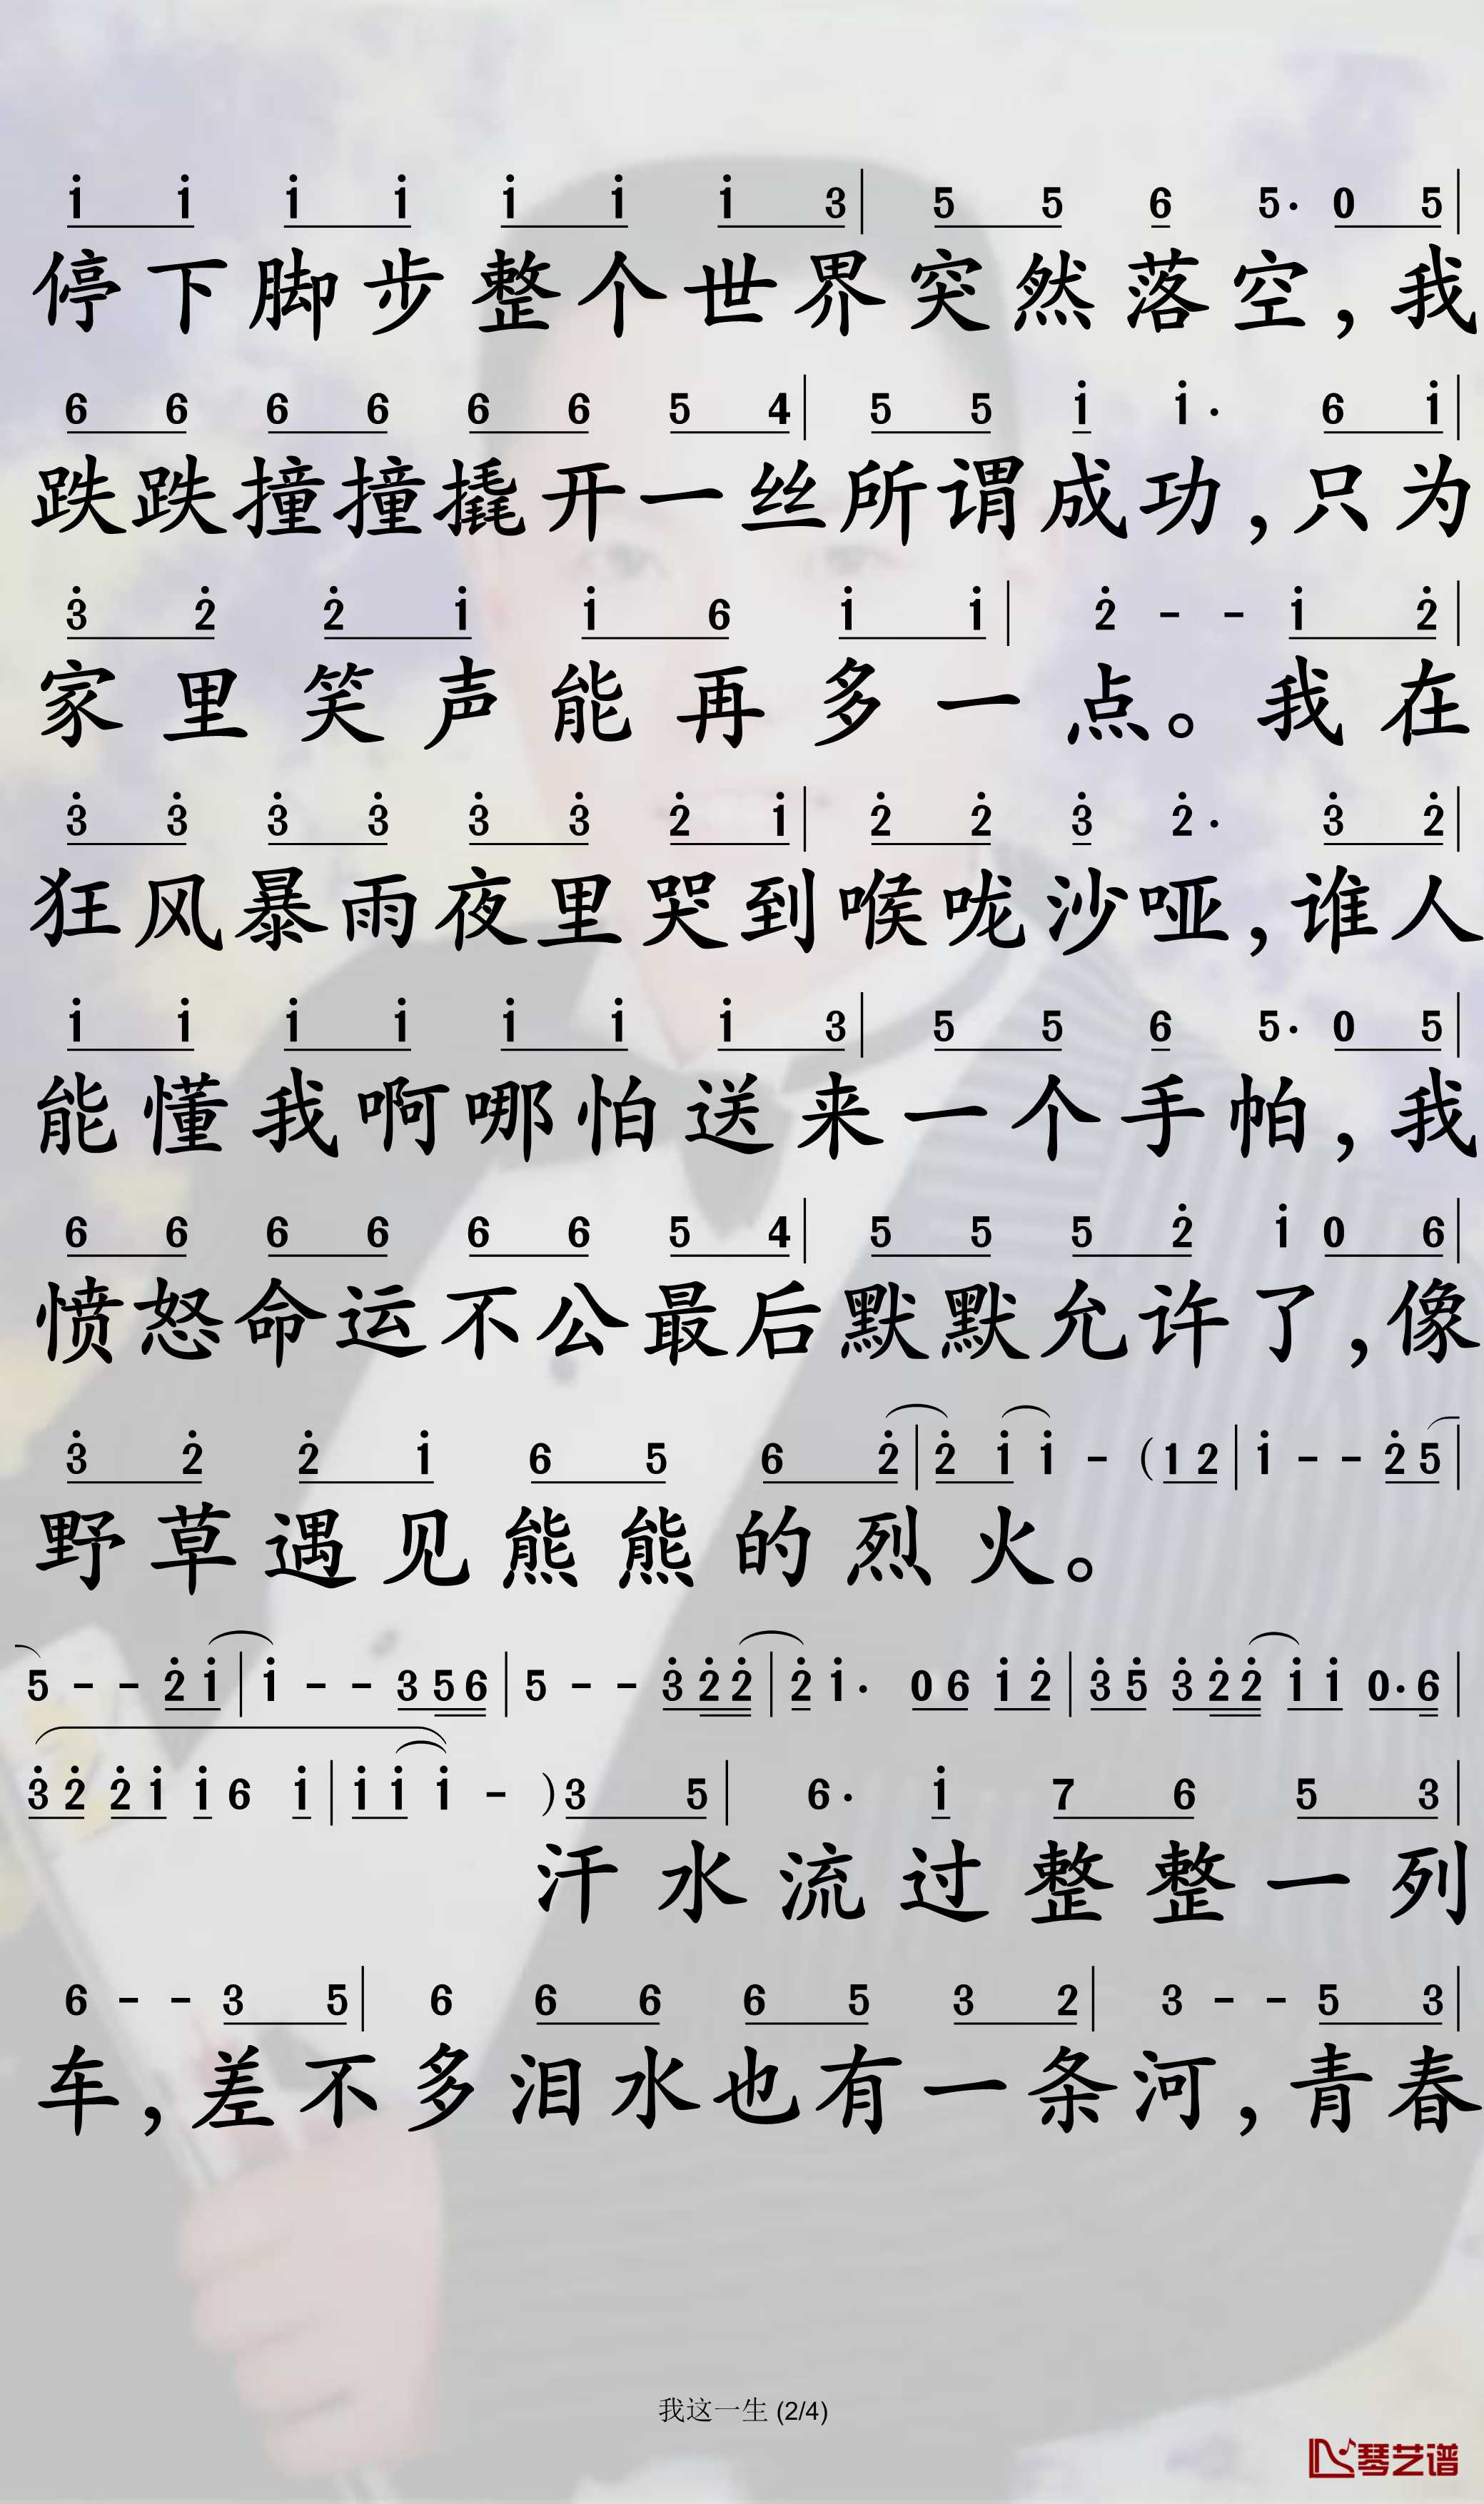 i̇ i̇ i̇ i̇ i̇ i̇ i̇ 3 | 5 5 6 5· 0 5 |
停下脚步整个世界突然落空，我
6 6 6 6 6 6 5 4 | 5 5 i̇ i̇· 6 i̇ |
跌跌撞撞撬开一丝所谓成功，只为
3̇ 2̇ 2̇ i̇ i̇ 6 i̇ i̇ | 2̇ - - i̇ 2̇ |
家里笑声能再多一点。我在
3̇ 3̇ 3̇ 3̇ 3̇ 3̇ 2̇ i̇ | 2̇ 2̇ 3̇ 2̇· 3̇ 2̇ |
狂风暴雨夜里哭到喉咙沙哑，谁人
i̇ i̇ i̇ i̇ i̇ i̇ i̇ 3 | 5 5 6 5· 0 5 |
能懂我啊哪怕送来一个手帕，我
6 6 6 6 6 6 5 4 | 5 5 5 2̇ i̇ 0 6 |
愤怒命运不公最后默默允许了，像
3̇ 2̇ 2̇ i̇ 6 5 6 2̇ | 2̇ i̇ i̇ - (1 2 | i̇ - - 2̇ 5 |
野草遇见熊熊的烈火。
5 - - 2̇ i̇ | i̇ - - 3 5 6 | 5 - - 3̇ 2̇ 2̇ | 2̇ i̇· 0 6 i̇ 2̇ | 3̇ 5̇ 3̇ 2̇ 2̇ i̇ i̇ 0· 6 |
3̇ 2̇ 2̇ i̇ i̇ 6 i̇ | i̇ i̇ i̇ - ) 3 5 | 6· i̇ 7 6 5 3 |
汗水流过整整一列
6 - - 3 5 | 6 6 6 6 5 3 2 | 3 - - 5 3 |
车，差不多泪水也有一条河，青春
我这一生 (2/4)
琴艺谱